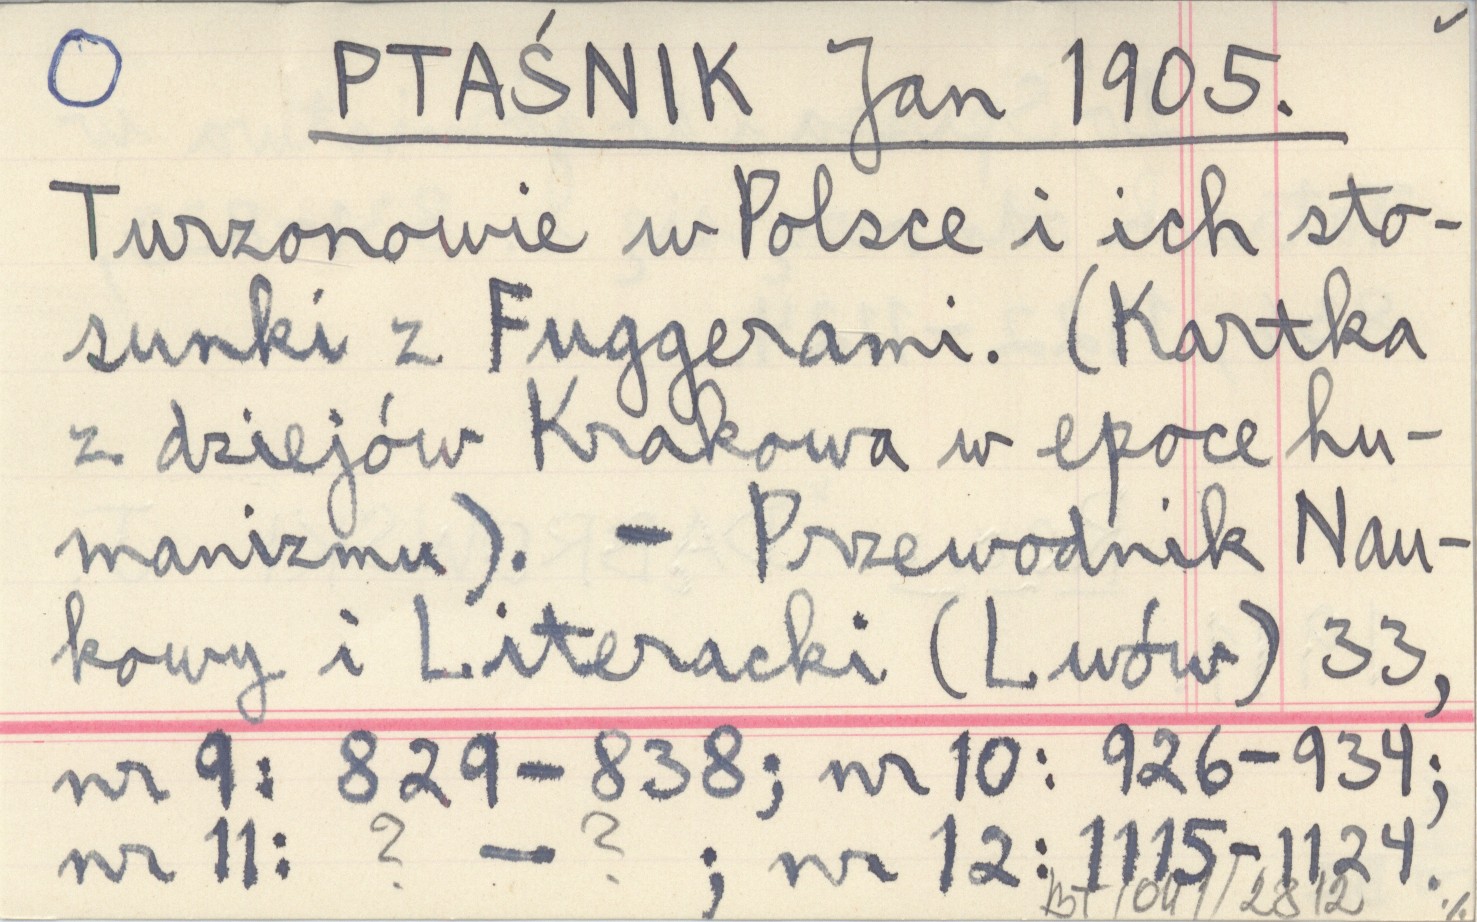 O PTAŚNIK Jan 1905.
Turzonowie w Polsce i ich sto-
sunki z Fuggerami. (Kartka
z dziejów Krakowa w epoce hu-
manizmu). - Przewodnik Nau-
kowy i Literacki (Lwów) 33,
nr 9: 829-838; nr 10: 926-934;
nr 11: ? - ? ; nr 12: 1115-1124.
2812 ./.